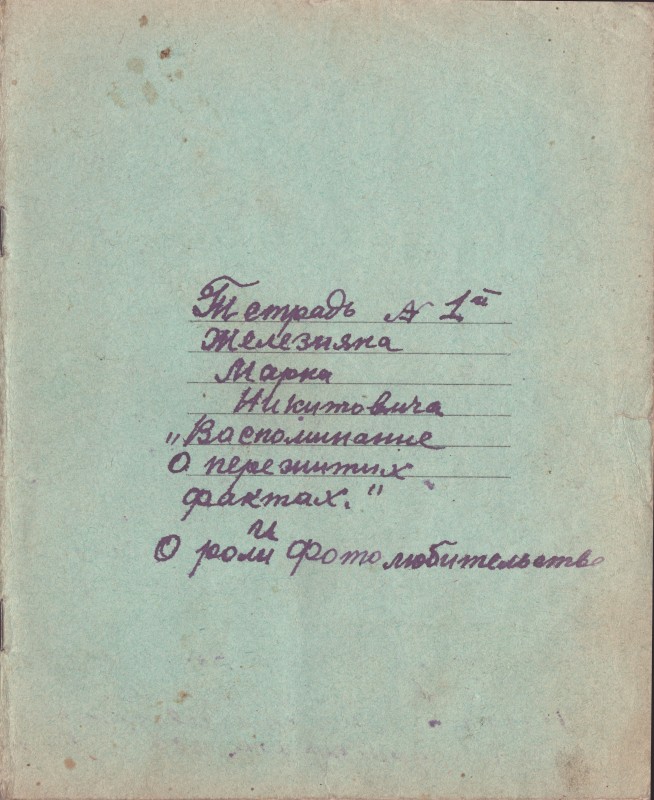 Тетрадь № 1й
Железняка
Марка
Никитовича
„Воспоминание
О пережитых
фактах."
и
О роли Фотолюбительства